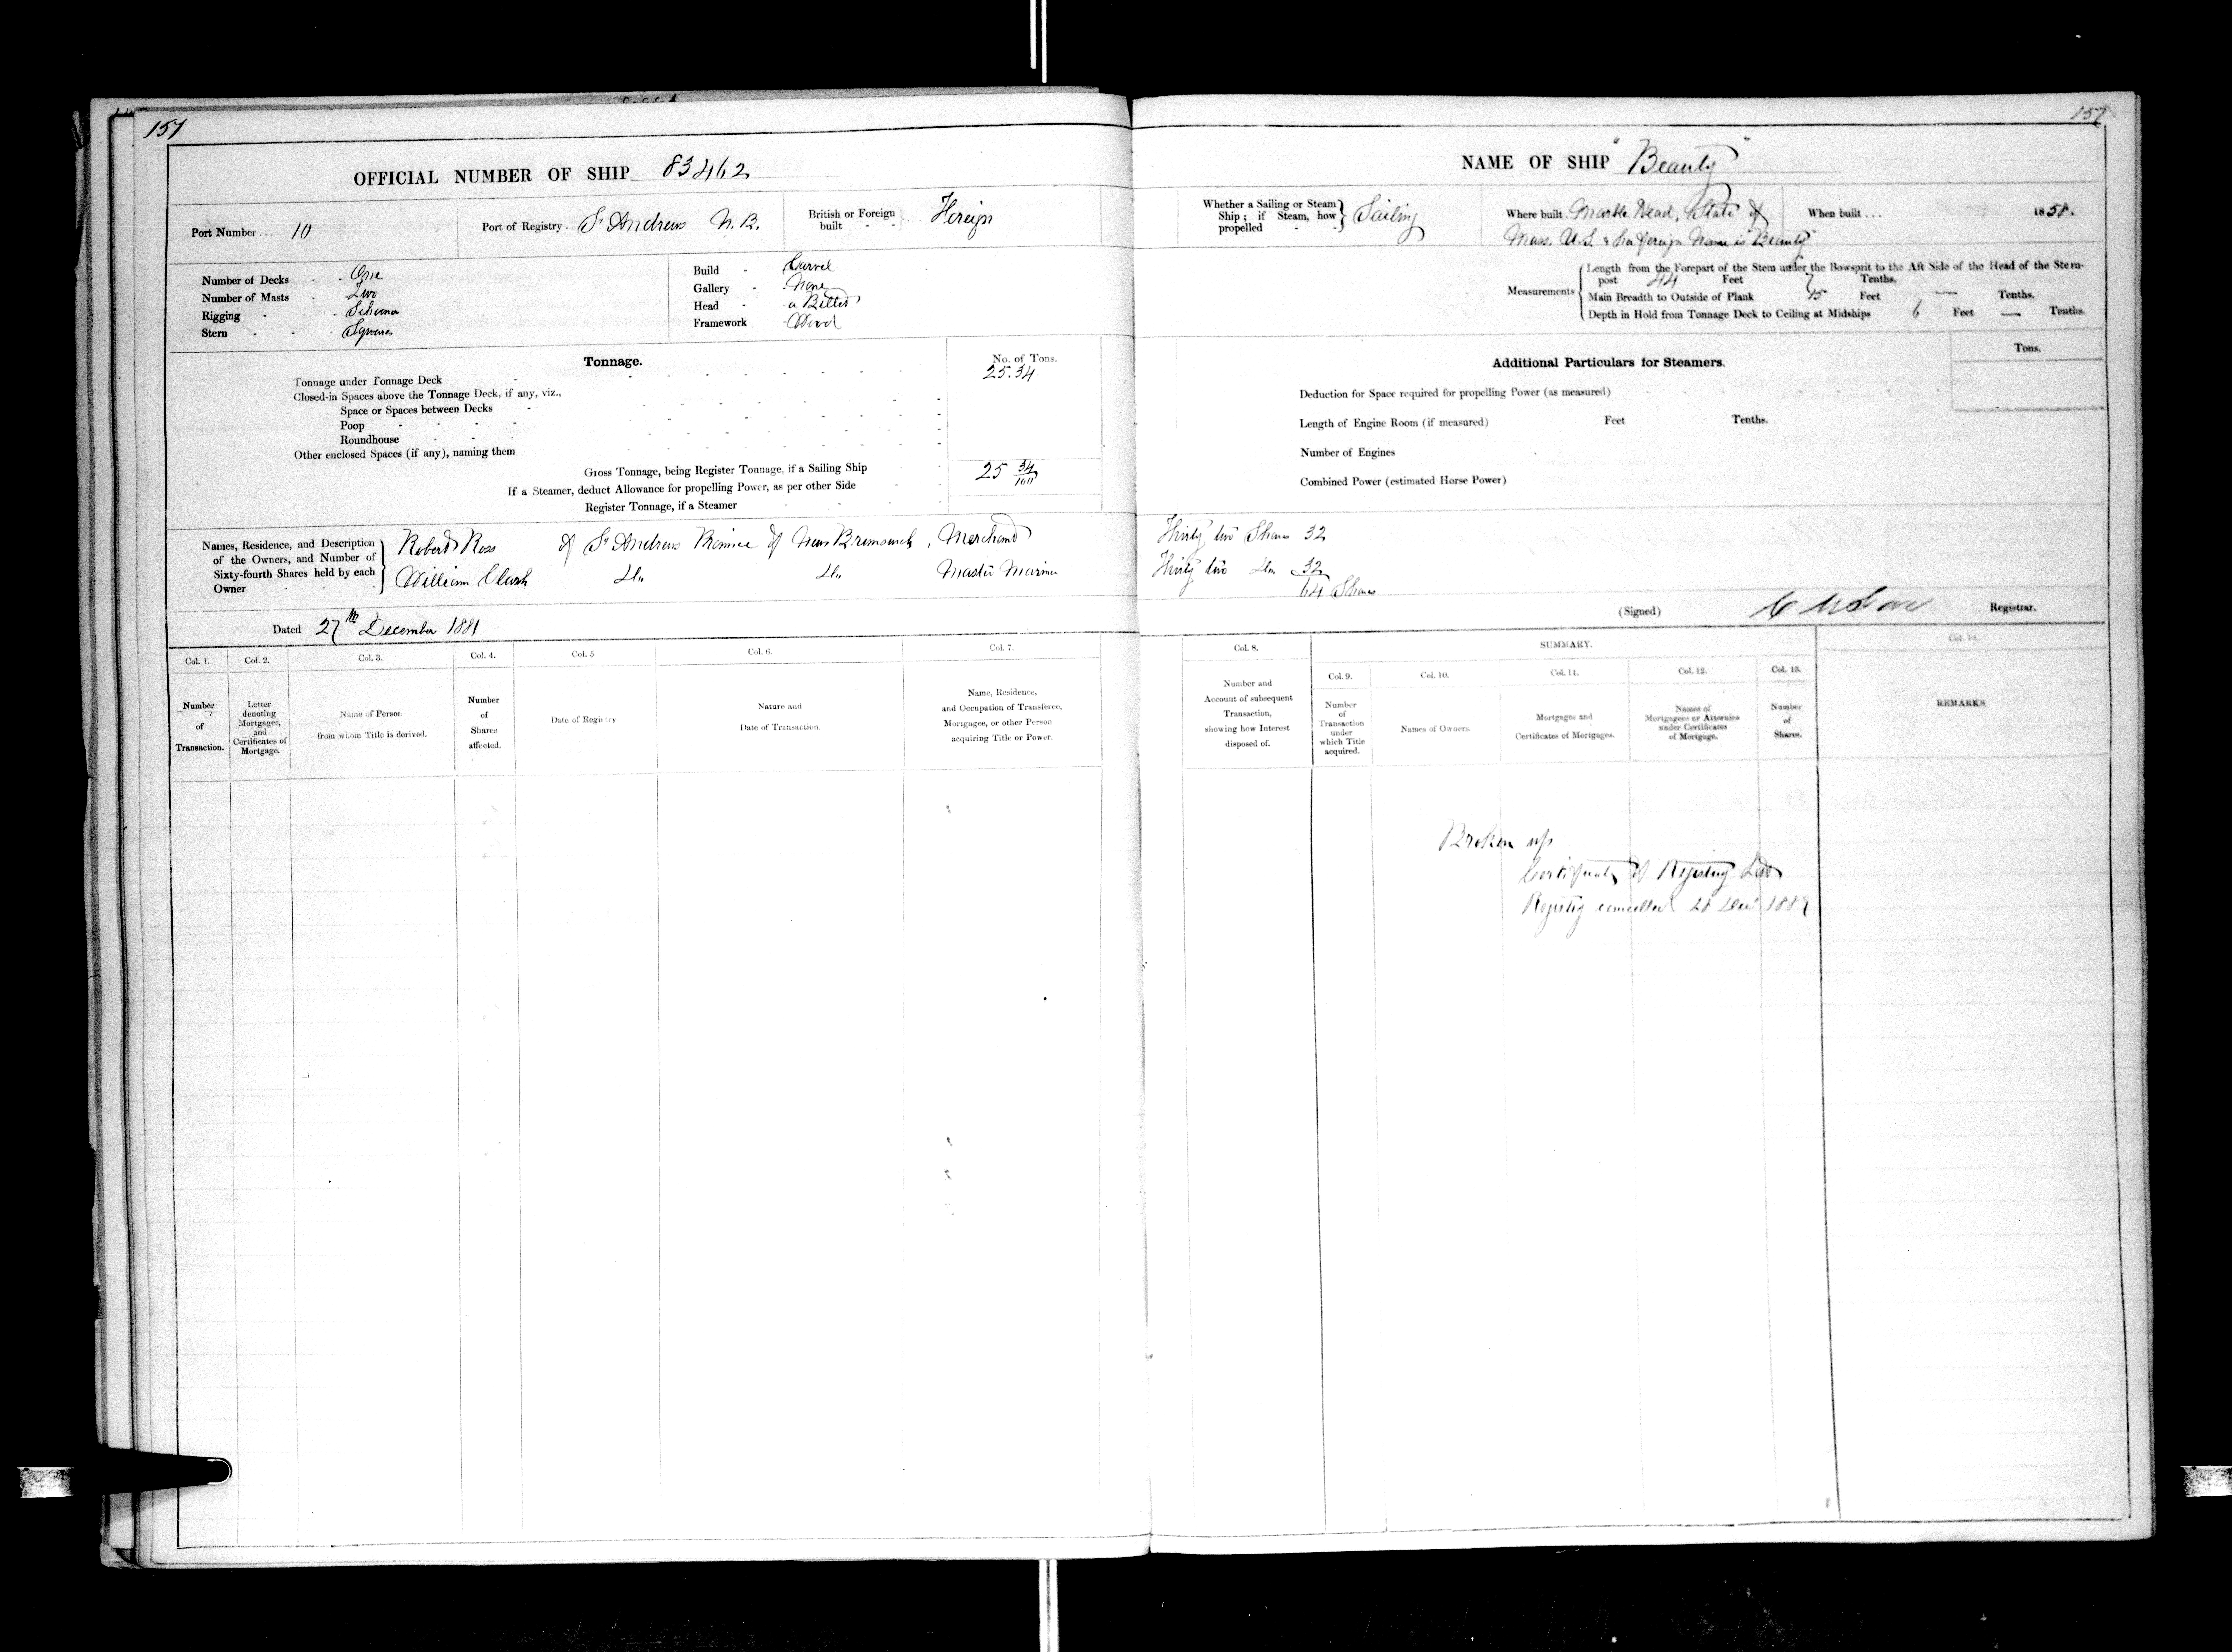 157
157
OFFICIAL NUMBER OF SHIP 83462
NAME OF SHIP "Beauty"
Port Number 10
Port of Registry St Andrews N.B.
British or Foreign built Foreign
Whether a Sailing or Steam Ship; if Steam, how propelled Sailing
Where built Marble Head, State of
Mass. U.S. & her foreign Name is "Beauty"
When built 1858.
Number of Decks One
Number of Masts Two
Rigging Schooner
Stern Square
Build Carvel
Gallery None
Head a Billet
Framework Wood
Measurements
Length from the Forepart of the Stem under the Bowsprit to the Aft Side of the Head of the Stern-
post 44 Feet Tenths.
Main Breadth to Outside of Plank 15 Feet — Tenths.
Depth in Hold from Tonnage Deck to Ceiling at Midships 6 Feet — Tenths.
Tonnage.
No. of Tons.
Tonnage under Tonnage Deck 25.34
Closed-in Spaces above the Tonnage Deck, if any, viz.,
Space or Spaces between Decks
Poop
Roundhouse
Other enclosed Spaces (if any), naming them
Gross Tonnage, being Register Tonnage, if a Sailing Ship 25 34/100
If a Steamer, deduct Allowance for propelling Power, as per other Side
Register Tonnage, if a Steamer
Additional Particulars for Steamers.
Tons.
Deduction for Space required for propelling Power (as measured)
Length of Engine Room (if measured) Feet Tenths.
Number of Engines
Combined Power (estimated Horse Power)
Names, Residence, and Description
of the Owners, and Number of
Sixty-fourth Shares held by each
Owner
Robert Ross of St Andrews Province of New Brunswick, Merchant Thirty two Shares 32
William Clark Do Do Master Mariner Thirty two Do 32
64 Shares
Dated 27th December 1881
(Signed) Registrar.
Col. 1.
Number
of
Transaction.
Col. 2.
Letter
denoting
Mortgages,
and
Certificates of
Mortgage.
Col. 3.
Name of Person
from whom Title is derived.
Col. 4.
Number
of
Shares
affected.
Col. 5
Date of Registry
Col. 6.
Nature and
Date of Transaction.
Col. 7.
Name, Residence,
and Occupation of Transferee,
Mortgagee, or other Person
acquiring Title or Power.
Col. 8.
Number and
Account of subsequent
Transaction,
showing how Interest
disposed of.
SUMMARY.
Col. 9.
Number
of
Transaction
under
which Title
acquired.
Col. 10.
Names of Owners.
Col. 11.
Mortgages and
Certificates of Mortgages.
Col. 12.
Names of
Mortgagees or Attornies
under Certificates
of Mortgage.
Col. 13.
Number
of
Shares.
Col. 14.
REMARKS.
Broken up
Certificate of Registry
Registry cancelled 28 Decr 1889